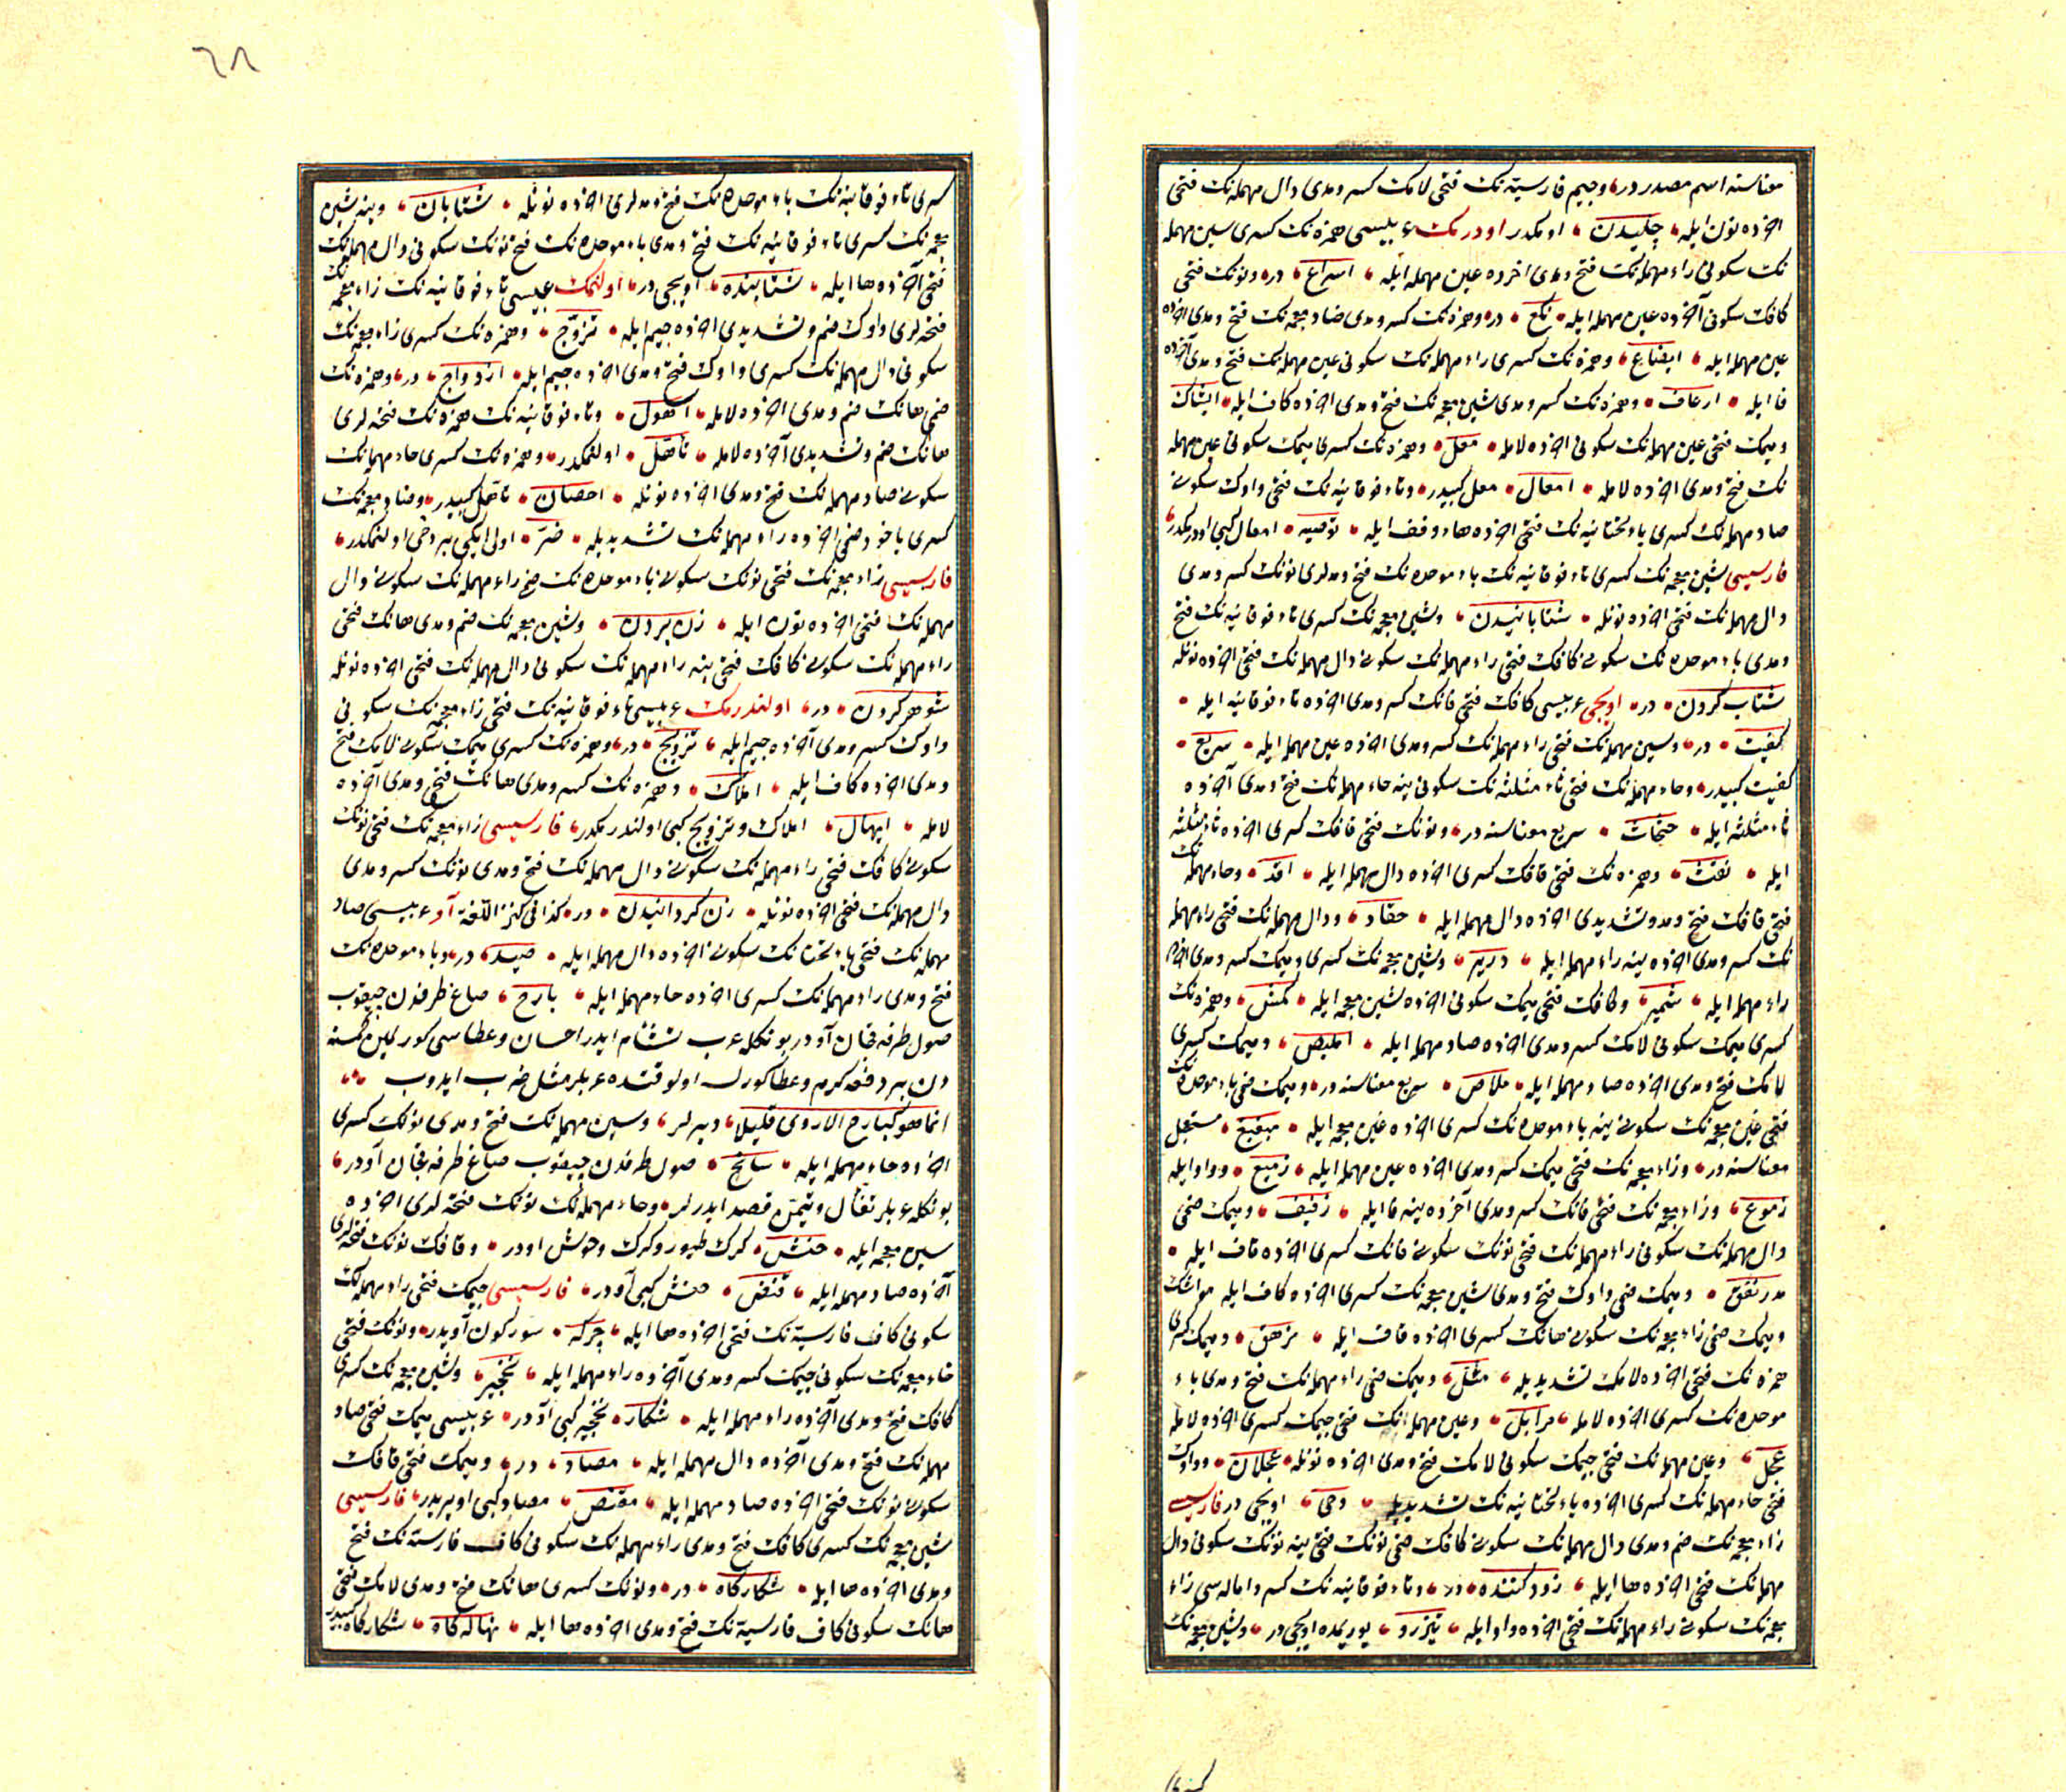 معناسنه اسم مصدردر وجيم فارسيه‌نك فتحى لامك كسر ومدى دال مهمله‌نك فتحى
اخرده نون ايله چليدن اومكدر اودرمك عربيسى همزه‌نك كسرى سين مهمله
نك سكونى راء مهمله‌نك فتح ومدى اخرده عين مهمله ايله اسراع در ونونك فتحى
كافك سكونى آخرده عين مهمله ايله نكع در وهمزه‌نك كسر ومدى ضاد معجمه‌نك فتح ومدى اخرده
عين مهمله ايله ايضاع وهمزه‌نك كسرى راء مهمله‌نك سكونى عين مهمله‌نك فتح ومدى آخرده
فا ايله ارعاف وهمزه‌نك كسر ومدى شين معجمه‌نك فتح ومدى اخرده كاف ايله ايشاك
وميمك فتحى عين مهمله‌نك سكونى اخرده لامله معل وهمزه‌نك كسرى ميمك سكونى عين مهمله
نك فتح ومدى اخرده لامله امعال معل كبيدر وتاء فوقانيه‌نك فتحى واوك سكونى
صاد مهمله‌نك كسرى ياء تحتانيه‌نك فتحى اخرده هاء وقف ايله توصيه امعال كبى اودرمكدر
فارسيسى شين معجمه‌نك كسرى تاء فوقانيه‌نك باء موحده‌نك فتح ومدلرى نونك كسر ومدى
دال مهمله‌نك فتحى اخرده نونله شتابانيدن وشين معجمه‌نك كسرى تاء فوقانيه‌نك فتح
ومدى باء موحده‌نك سكونى كافك فتحى راء مهمله‌نك سكونى دال مهمله‌نك فتحى اخرده نونله
شتاب كردن در اويجى عربيسى كافك فتحى فانك كسر ومدى اخرده تاء فوقانيه ايله
كفيت در وسين مهمله‌نك فتحى راء مهمله‌نك كسر ومدى اخرده عين مهمله ايله سريع
كفيت كبيدر وحاء مهمله‌نك فتحى ثاء مثلثه‌نك سكونى ينه حاء مهمله‌نك فتح ومدى آخرده
ثاء مثلثه ايله حثحاث سريع معناسنه در ونونك فتحى قافك كسرى اخرده ثاء مثلثه
ايله نقث وهمزه‌نك فتحى قافك كسرى اخرده دال مهمله ايله اقد وحاء مهمله‌نك
فتحى قافك فتح ومد وتشديدى اخرده دال مهمله ايله حقاد ودال مهمله‌نك فتحى راء مهمله
نك كسر ومدى اخرده ينه راء مهمله ايله درير وشين معجمه‌نك كسرى وميمك كسر ومدى اخرده
راء مهمله ايله شمير وكافك فتحى ميمك سكونى اخرده شين معجمه ايله كمش وهمزه‌نك
كسرى ميمك سكونى لامك كسر ومدى اخرده صاد مهمله ايله امليص وميمك كسرى
لامك فتح ومدى اخرده صاد مهمله ايله ملاص سريع معناسنه در وميمك ضمى باء موحده‌نك
فتحى غين معجمه‌نك سكونى ينه باء موحده‌نك كسرى اخرده غين معجمه ايله مبغبغ مستعجل
معناسنه در وزاء معجمه‌نك فتحى ميمك كسر ومدى اخرده عين مهمله ايله زميع وواو ايله
زموع وزاء معجمه‌نك فتحى فانك كسر ومدى آخرده ينه فا ايله زفيف وميمك ضمى
دال مهمله‌نك سكونى راء مهمله‌نك فتحى نونك سكونى فانك كسرى اخرده قاف ايله
مدرنفق وميمك ضمى واوك فتح ومدى شين معجمه‌نك كسرى اخرده كاف ايله مواشك
وميمك ضمى زاء معجمه‌نك سكونى هانك كسرى اخرده قاف ايله مزهق وميمك كسرى
همزه‌نك فتحى اخرده لامك تشديديله مئل وميمك ضمى راء مهمله‌نك فتح ومدى باء
موحده‌نك كسرى اخرده لامله مرابل وعين مهمله‌نك فتحى جيمك كسرى اخرده لامله
عجل وعين مهمله‌نك فتحى جيمك سكونى لامك فتح ومدى اخرده نونله عجلان وواوك
فتحى حاء مهمله‌نك كسرى اخرده ياء تحتانيه‌نك تشديديله وحى اويجى در فارسيسى
زاء معجمه‌نك ضم ومدى دال مهمله‌نك سكونى كافك ضمى نونك فتحى ينه نونك سكونى دال
مهمله‌نك فتحى اخرده ها ايله زود كننده در وتاء فوقانيه‌نك كسر واماله‌سى زاء
معجمه‌نك سكونى راء مهمله‌نك فتحى اخرده واو ايله تيزرو يوريمده اويجى در وشين معجمه‌نك
كسرى
٦٨
كسرى تاء فوقانيه‌نك باء موحده‌نك فتح ومدلرى اخرده نونله شتابان وينه شين
معجمه‌نك كسرى تاء فوقانيه‌نك فتح ومدى باء موحده‌نك فتح نونك سكونى دال مهمله‌نك
فتحى آخرده ها ايله شتابنده اويجى در اولنمك عربيسى تاء فوقانيه‌نك زاء معجمه‌نك
فتحه‌لرى واوك ضم وتشديدى اخرده جيم ايله تزوج وهمزه‌نك كسرى زاء معجمه‌نك
سكونى دال مهمله‌نك كسرى واوك فتح ومدى اخرده جيم ايله ازدواج در وهمزه‌نك
ضمى هانك ضم ومدى اخرده لامله اهول وتاء فوقانيه‌نك همزه‌نك فتحه‌لرى
هانك ضم وتشديدى آخرده لامله تأهل اولنمكدر وهمزه‌نك كسرى حاء مهمله‌نك
سكونى صاد مهمله‌نك فتح ومدى اخرده نونله احصان تأهل كبيدر وضاد معجمه‌نك
كسرى ياخود ضمى اخرده راء مهمله‌نك تشديديله ضر اولى ايكى بر دخى اولنمكدر
فارسيسى زاء معجمه‌نك فتحى نونك سكونى باء موحده‌نك ضم راء مهمله‌نك سكونى دال
مهمله‌نك فتحى اخرده نون ايله زن بردن وشين معجمه‌نك ضم ومدى هانك فتحى
راء مهمله‌نك سكونى كافك فتحى ينه راء مهمله‌نك سكونى دال مهمله‌نك فتحى اخرده نونله
شوهر كردن در اولندرمك عربيسى تاء فوقانيه‌نك فتحى زاء معجمه‌نك سكونى
واوك كسر ومدى آخرده جيم ايله تزويج در وهمزه‌نك كسرى ميمك سكونى لامك فتح
ومدى اخرده كاف ايله املاك وهمزه‌نك كسر ومدى هانك فتح ومدى آخرده
لامله ايهال املاك وتزويج كبى اولندرمكدر فارسيسى زاء معجمه‌نك فتحى نونك
سكونى كافك فتحى راء مهمله‌نك سكونى دال مهمله‌نك فتح ومدى نونك كسر ومدى
دال مهمله‌نك فتحى اخرده نونله زن كردانيدن در كذا فى كنز اللغة آو عربيسى صاد
مهمله‌نك فتحى ياء تحتانيه‌نك سكونى اخرده دال مهمله ايله صيد در وباء موحده‌نك
فتح ومدى راء مهمله‌نك كسرى اخرده حاء مهمله ايله بارح صاغ طرفدن چيقوب
صول طرفه قچان آودر بونكله عرب تشأم ايدر احسان وعطاسى كورلمين كسنه
دن بر دفعه كرم وعطا كورلسه اولوقتده عربلر مثل ضرب ايدوب
انما هو كبارح الاروى قليلا ديرلر وسين مهمله‌نك فتح ومدى نونك كسرى
اخرده حاء مهمله ايله سانح صول طرفدن چيقوب صاغ طرفه قچان آودر
بونكله عربلر تفأل وتيمن قصد ايدرلر وحاء مهمله‌نك نونك فتحه‌لرى اخرده
شين معجمه ايله حنش كرك طيور وكرك وحوش اودر وقافك نونك فتحه‌لرى
آخرده صاد مهمله ايله قنص حنش كبى آودر فارسيسى جيمك فتحى راء مهمله‌نك
سكونى كاف فارسيه‌نك فتحى اخرده ها ايله جرگه سوركون آويدر ونونك فتحى
خاء معجمه‌نك سكونى جيمك كسر ومدى آخرده راء مهمله ايله نخجير وشين معجمه‌نك كسرى
كافك فتح ومدى آخرده راء مهمله ايله شكار نخجير كبى آودر عربيسى ميمك فتحى صاد
مهمله‌نك فتح ومدى آخرده دال مهمله ايله مصاد در وميمك فتحى قافك
سكونى نونك فتحى اخرده صاد مهمله ايله مقنص مصاد كبى اويريدر فارسيسى
شين معجمه‌نك كسرى كافك فتح ومدى راء مهمله‌نك سكونى كاف فارسيه‌نك فتح
ومدى اخرده ها ايله شكارگاه در ونونك كسرى هانك فتح ومدى لامك فتحى
هانك سكونى كاف فارسيه‌نك فتح ومدى اخرده ها ايله نهاله گاه شكارگاه كبيدر